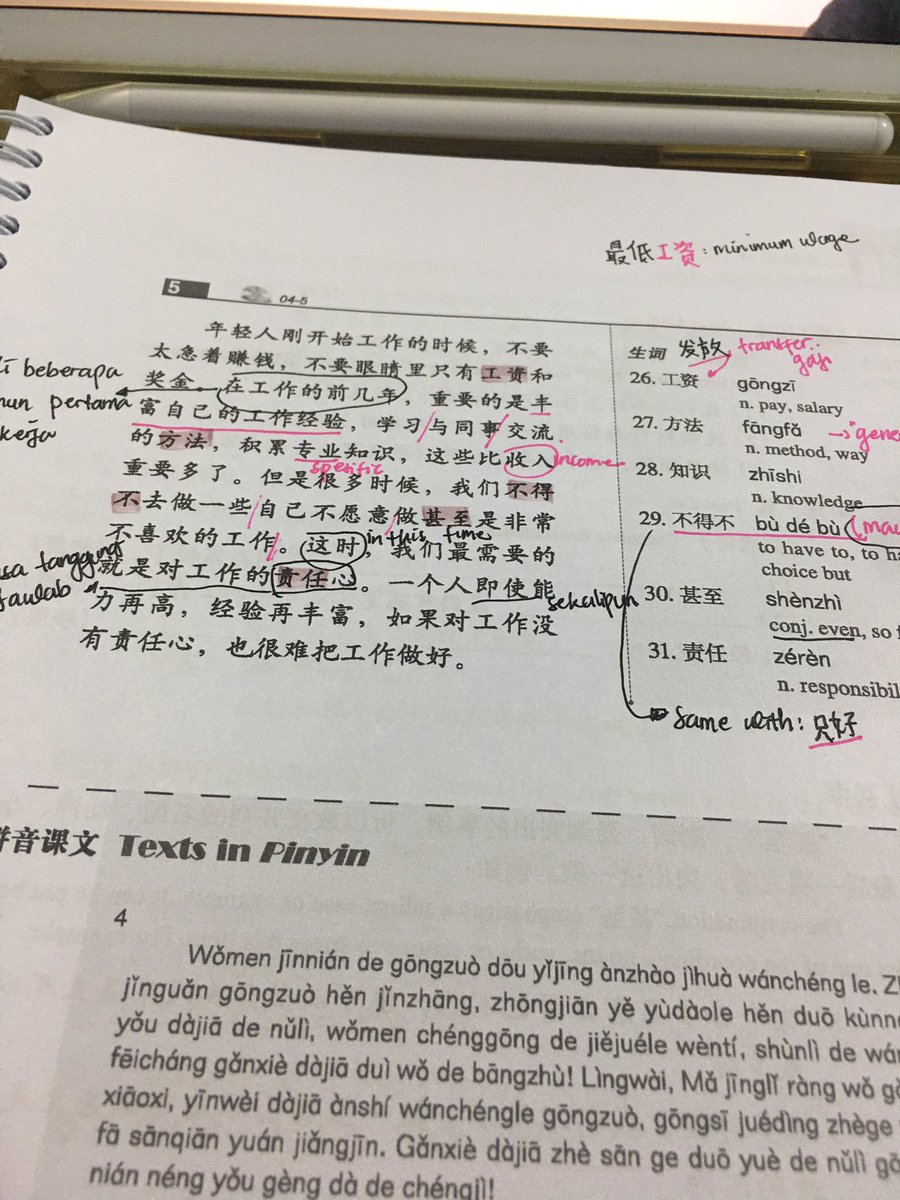 最低工资: minimum wage
5 04-5
年轻人刚开始工作的时候，不要
太急着赚钱，不要眼睛里只有工资和
奖金。在工作的前几年，重要的是丰
富自己的工作经验，学习与同事交流
的方法，积累专业知识，这些比收入
重要多了。但是很多时候，我们不得
不去做一些自己不愿意做甚至是非常
不喜欢的工作。这时，我们最需要的
就是对工作的责任心。一个人即使能
力再高，经验再丰富，如果对工作没
有责任心，也很难把工作做好。
beberapa
pertama
kerja
spesific
income
in this time
tanggung
jawab
sekalipun
生词 发放 transfer:
gaji
26. 工资 gōngzī
n. pay, salary
27. 方法 fāngfǎ
n. method, way
28. 知识 zhīshi
n. knowledge
29. 不得不 bù dé bù
to have to, to
choice but
30. 甚至 shènzhì
conj. even, so
31. 责任 zérèn
n.
same with: 只好
音课文 Texts in Pinyin
4
Wǒmen jīnnián de gōngzuò dōu yǐjīng ànzhào jìhuà wánchéng le.
jǐnguǎn gōngzuò hěn jǐnzhāng, zhōngjiān yě yùdàole hěn duō
yǒu dàjiā de nǔlì, wǒmen chénggōng de jiějuéle wèntí, shùnlì de
fēicháng gǎnxiè dàjiā duì wǒ de bāngzhù! Lìngwài, Mǎ jīnglǐ ràng wǒ
xiāoxi, yīnwèi dàjiā ànshí wánchéngle gōngzuò, gōngsī juédìng zhège
fā sānqiān yuán jiǎngjīn. Gǎnxiè dàjiā zhè sān ge duō yuè de nǔlì
nián néng yǒu gèng dà de chéngjì!